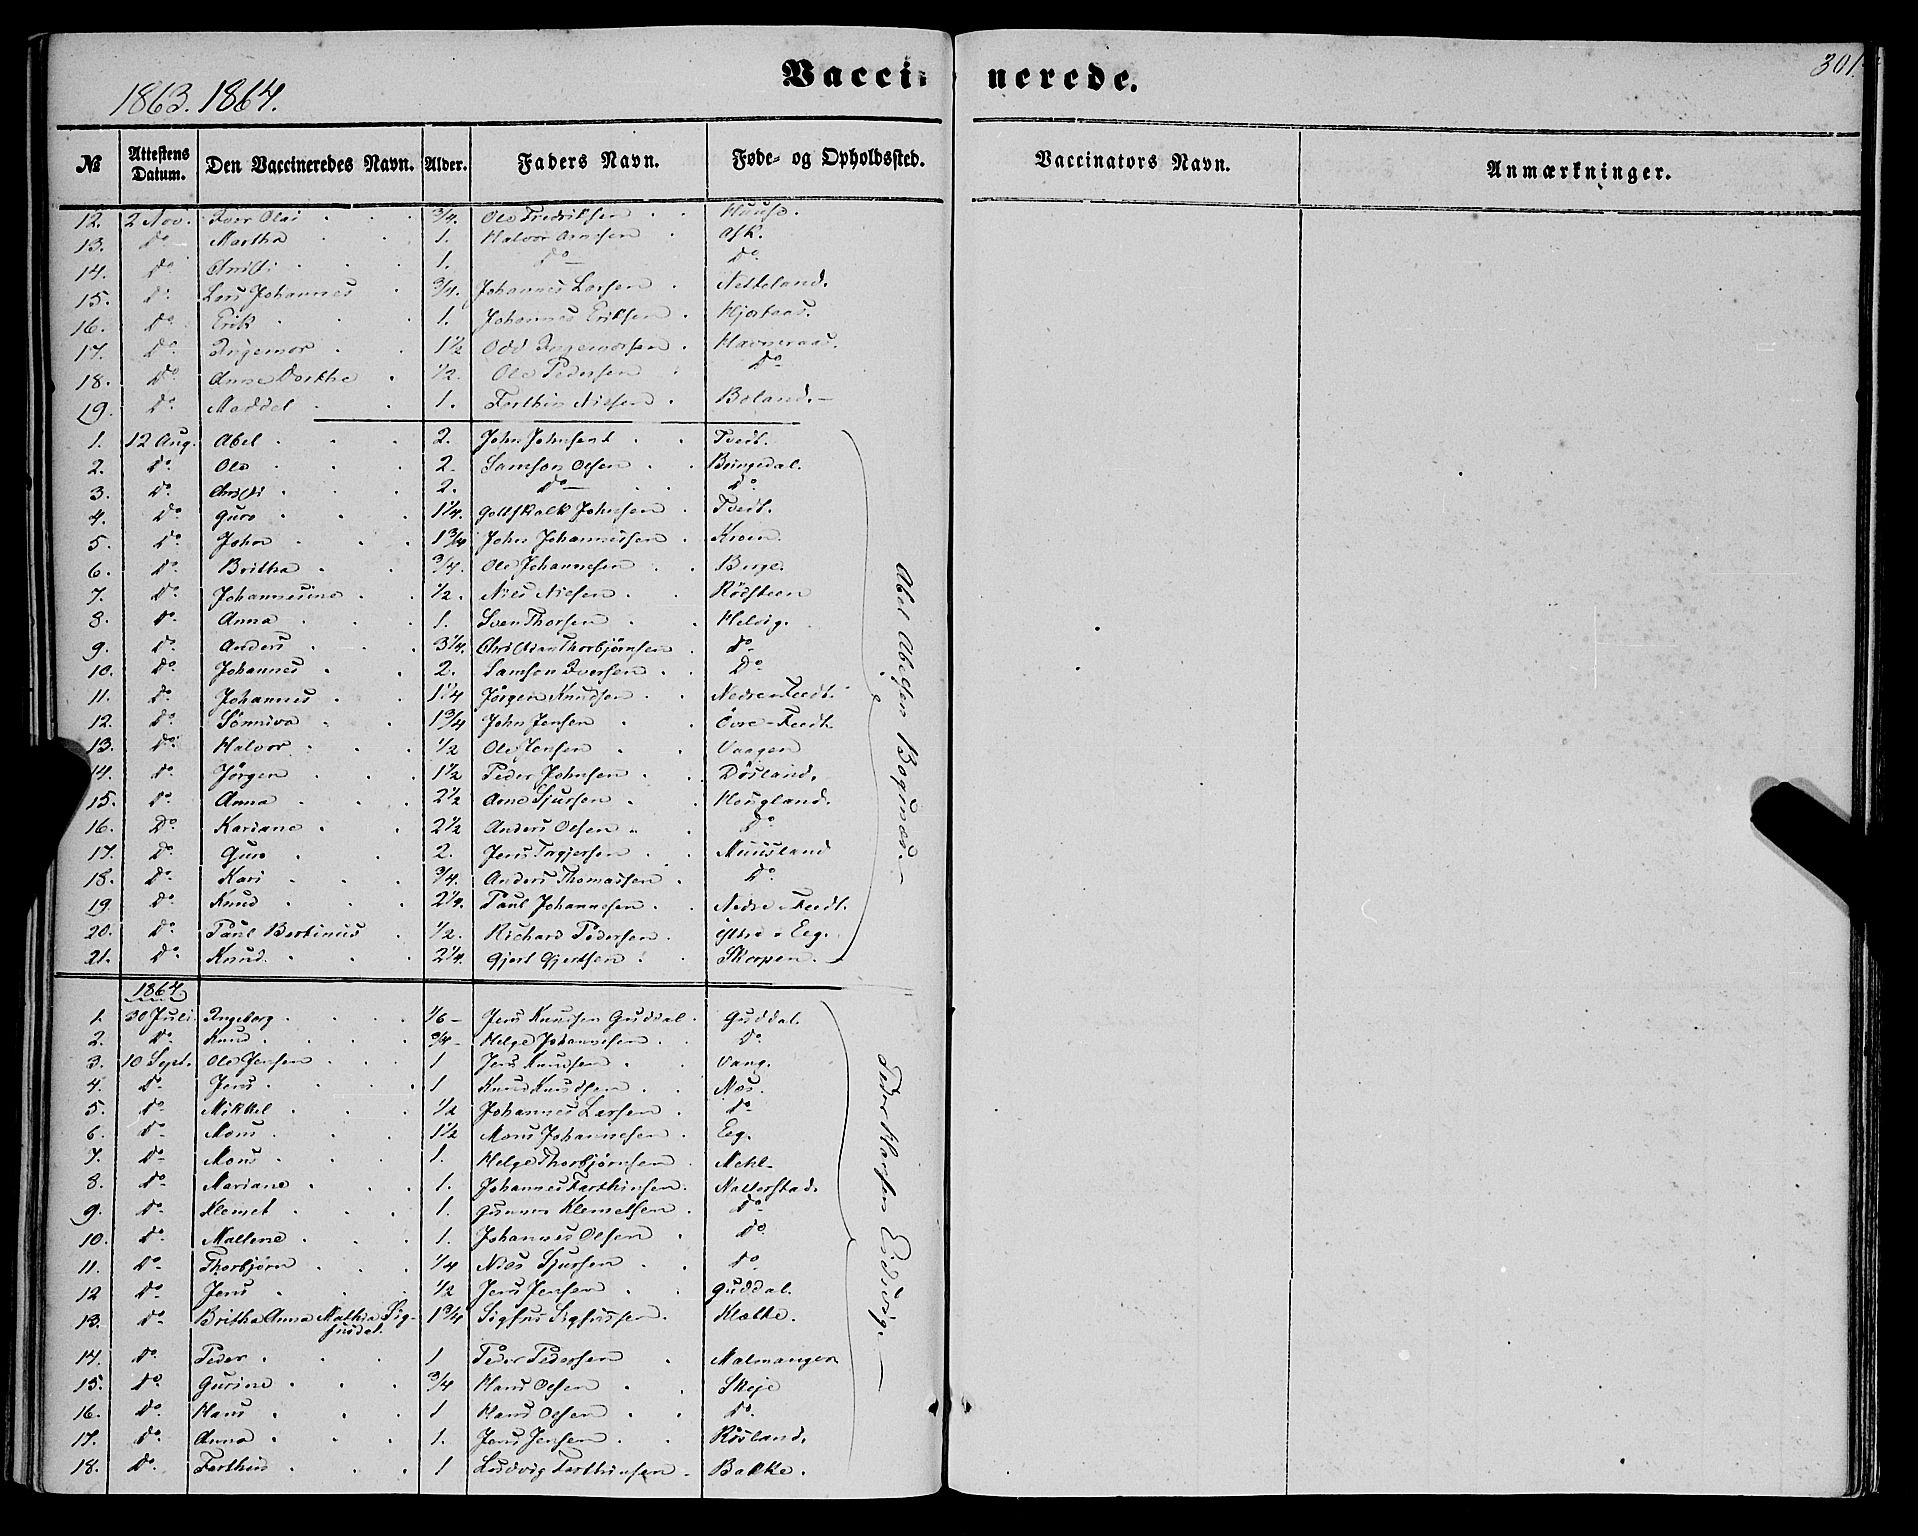 301.
1863. 1864.
Vaccinerede.
№ Attestens Datum. Den Vaccineredes Navn. Alder. Faders Navn. Føde- og Opholdssted. Vaccinators Navn. Anmærkninger.
12. 2 Nov. Iver Olai 3/4. Ole Fredriksen Huuse.
13. Do Martha 1. Halvor Arnesen Ask.
14. Do Christi 1. Do Do
15. Do Lars Johannes 3/4. Johannes Larsen Netteland.
16. Do Erik 1. Johannes Eriksen Hjortaas.
17. Do Ingemor 1 1/2 Odd Ingemorsen Havneraas.
18. Do Anna Dorthe 1/2. Ole Pedersen Do
19. Do Maddel 1. Torthin Nielsen Boland.
1. 12 Aug. Abel 2. John Johnsen Tvedt.
2. Do Ole 2. Samson Olsen Bringedal.
3. Do Christi 2. Do Do
4. Do Guro 1 1/4 Gottskalk Johnsen Tvedt.
5. Do John 1 3/4 John Johannessen Kroen.
6. Do Britha 3/4. Ole Johannesen Berge.
7. Do Johannesine 1/2. Niels Nielsen Rödsteen
8. Do Anna 1. Sven Thorsen Helvig.
9. Do Anders 3 1/4. Christian Thorbjørnsen Do
10. Do Johannes 2. Samson Iversen Do
11. Do Johannes 1 1/4 Jørgen Knudsen Nedre-Feedt.
12. Do Sönniva 1 3/4 John Jensen Övre-Feedt.
13. Do Halvor 1/2 Ole Jensen Vaagen
14. Do Jörgen 1 1/2 Peder Johnsen Dösland.
15. Do Anna 2 1/2 Arne Sjursen Hougland.
16. Do Kariane 2 1/2 Anders Olsen Do
17. Do Guro 2. Jens Torgjersen Muusland
18. Do Kari 3/4. Anders Thomassen Do
19. Do Knud 2 1/4. Paul Johannesen Nedre-Feedt.
20. Do Paul Bertinus 1/2. Richard Pedersen Ystre-Eeg.
21. Do Knud. 2 1/4. Gjert Gjertsen Skorpen.
Abel Abelsen Bogsnæs.
1864
1. 30 Juli. Ingeborg 1/6 Jens Knudsen Guddal Guddal.
2. Do Knud 3/4 Helge Johannesen Do
3. 10 Sept. Ole Jensen 1 Jens Knudsen Vang.
4. Do Jens 1 Knud Knudsen Næs.
5. Do Mikkel 1/2 Johannes Larsen Do
6. Do Mons 1 1/2 Mons Johannesen Eeg.
7. Do Mons 1. Helge Thorbjørnsen Mehl
8. Do Mariane 1. Johannes Torthinsen. Natterstad.
9. Do Klemet 1. Gunnar Klemetsen Do
10. Do Mallene 1. Johannes Olsen Do
11. Do Thorbjørn 1/4 Niels Sjursen Do
12 Do Jens 1/2 Jens Jensen Guddal.
13. Do Britha Anna Mathia Sig-
fusdat. 1 3/4 Sigfus Sigfussen Klætke.
14. Do Peder 1 Peder Pedersen Malmanger
15. Do Gurine 3/4 Hans Olsen Skeje
16. Do Hans 1 Hans Olsen Do
17. Do Anna 1. Jens Jensen Rösland.
18. Do Torthin 1 Ludvig Torthinsen Bakke.
Peder Hansen Eidsvig.